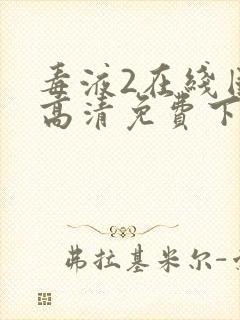 毒液2在綫
高清免費下
弗拉基米尔-